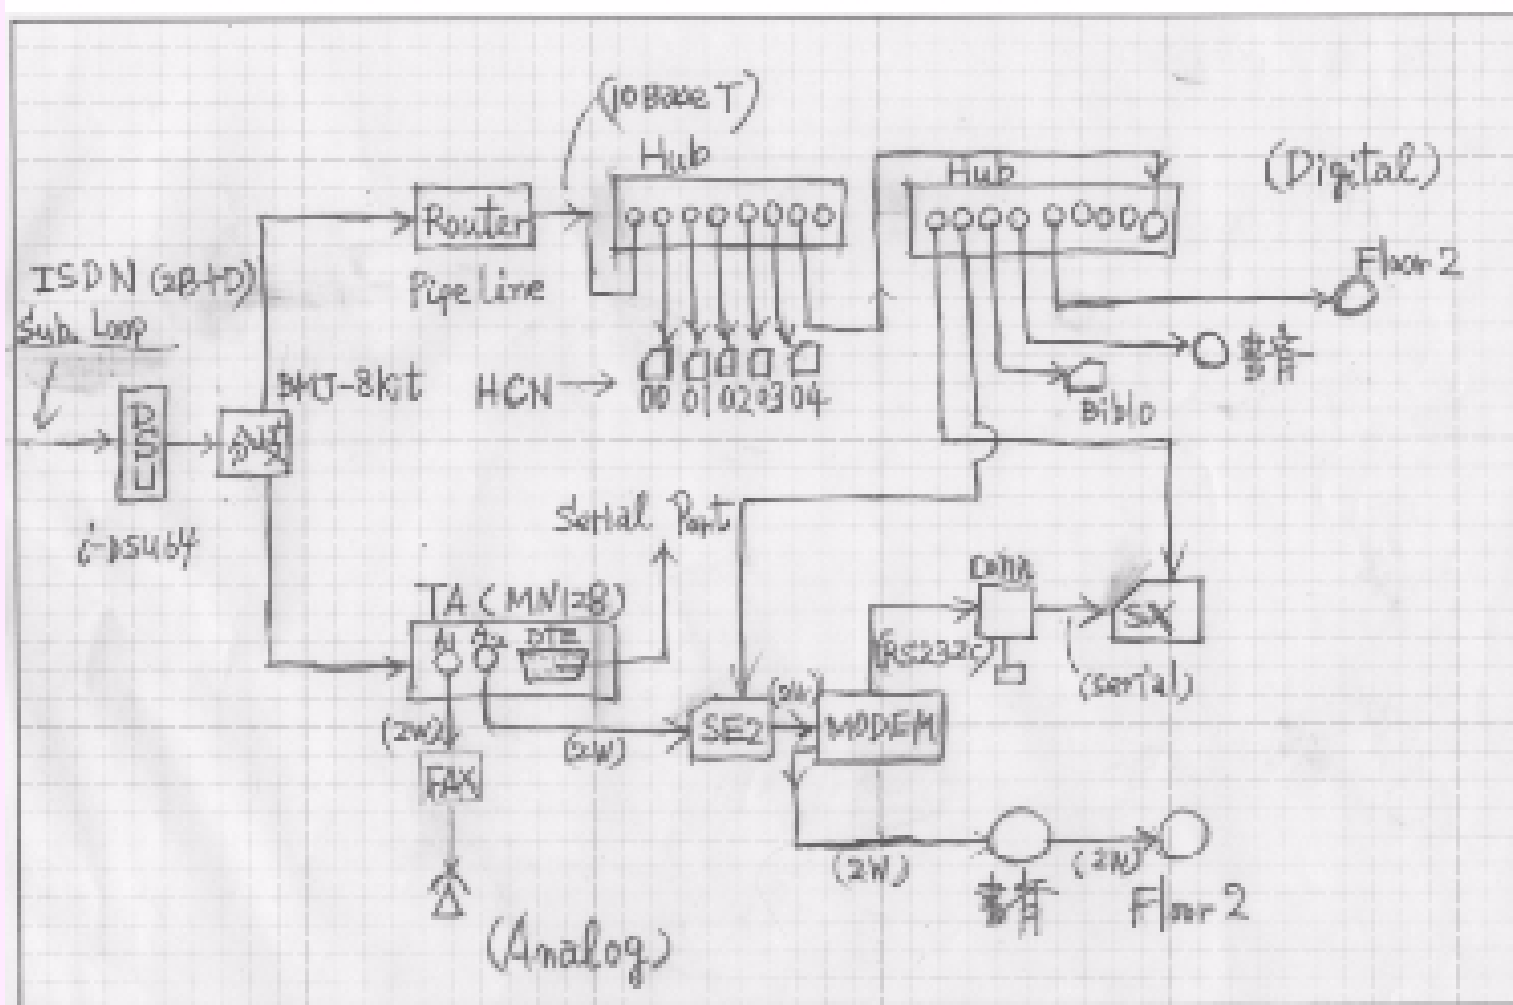 (10 Base T)
Hub
Hub
(Digital)
Router
Pipe Line
ISDN (2B+D)
Sub. Loop
Floor 2
書斎
Biblo
HCN
00 01 02 03 04
DSU
分岐
i-DSU64
Serial Port
TA (MN128)
A1 A2 DTE
Conn
SX
(RS232C)
(serial)
(2W)
(2W)
SE2
(2W)
MODEM
FAX
(2W)
(2W)
書斎
Floor 2
(Analog)